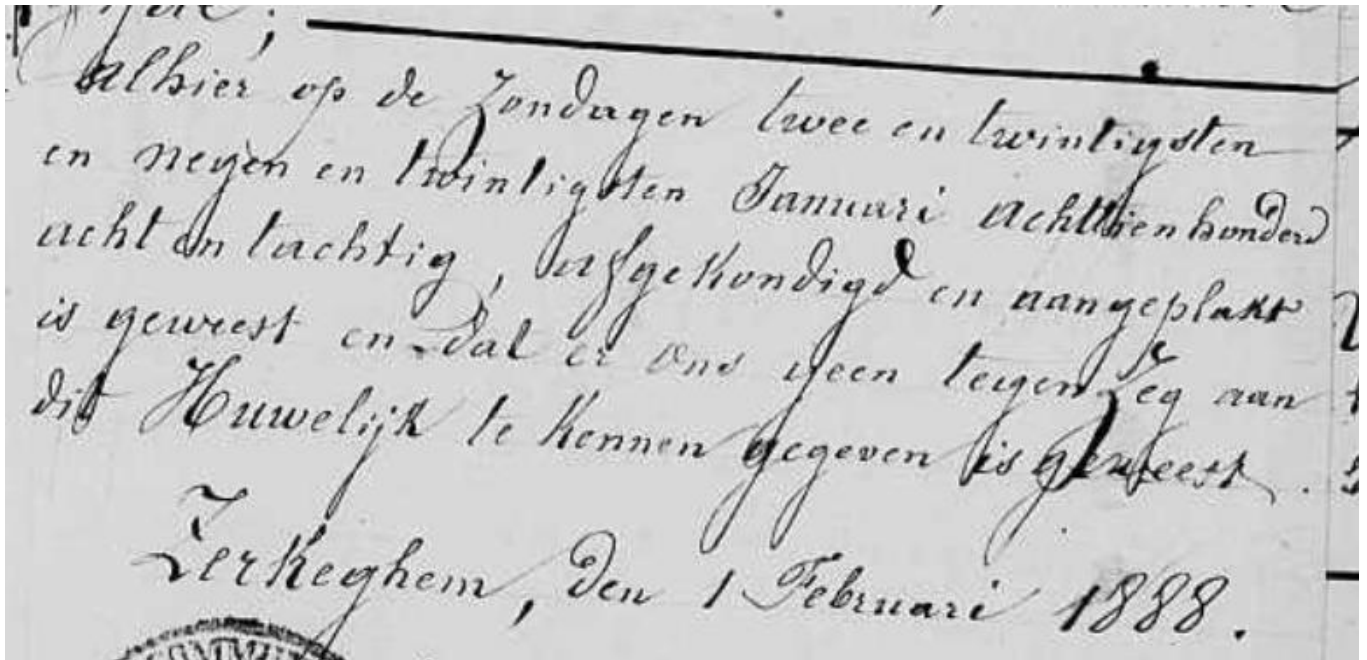 Alhier op de Zondagen twee en twintigsten
en negen en twintigsten Januari achttienhonderd
acht en tachtig, afgekondigd en aangeplakt
is geweest en dat er ons geen tegenzeg aan
dit Huwelijk te kennen gegeven is geweest.
Zerkeghem, den 1 Februari 1888.